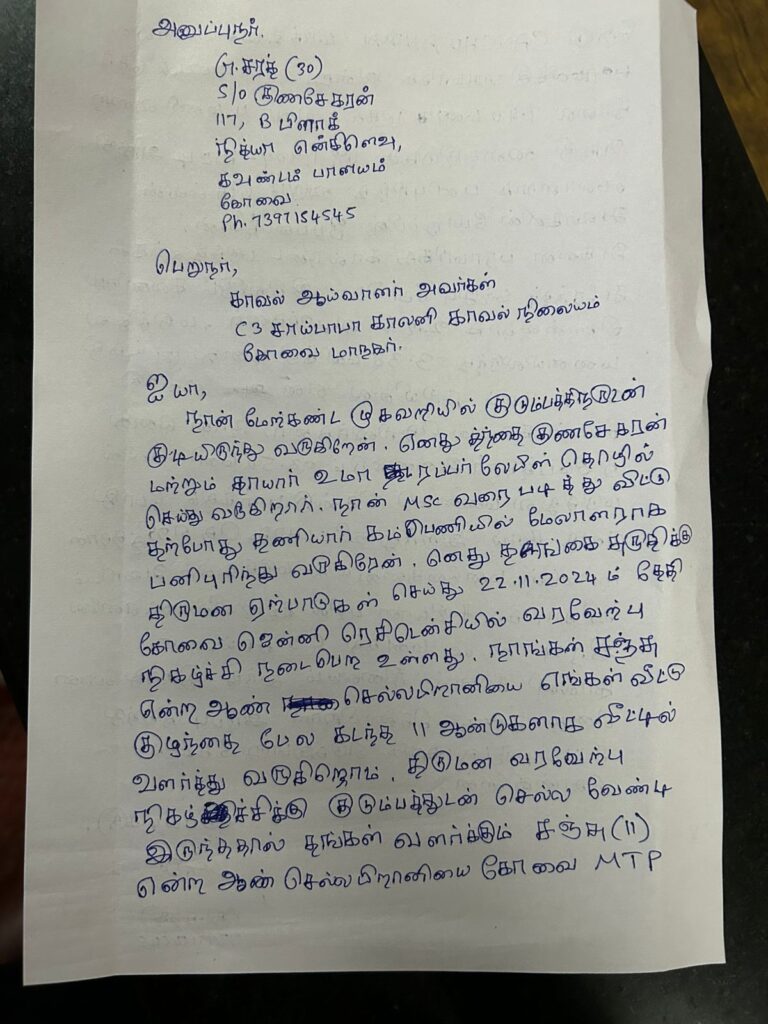 அனுப்புநர்.
G. சரத் (30)
S/o குணசேகரன்
117, B பிளாக்
நித்யா என்கிளெவ்,
கவுண்டம் பாளயம்
கோவை
Ph. 7397154545
பெறுநர்,
காவல் ஆய்வாளர் அவர்கள்
C3 சாய்பாபா காலனி காவல் நிலையம்
கோவை மாநகர்.
ஐயா,
நான் மேற்கண்ட முகவறியில் குடும்பத்தினருடன்
குடியிருந்து வருகிறேன். எனது தந்தை குணசேகரன்
மற்றும் தாயார் உமா ரப்பர் லேபிள் தொழில்
செய்து வருகிறார். நான் MSC வரை படித்து விட்டு
தற்போது தனியார் கம்பெணியில் மேலாளராக
பனிபுரிந்து வருகிறேன். எனது தங்கை சுருதிக்கு
திருமண ஏற்பாடுகள் செய்து 22.11.2024 ம் தேதி
கோவை ஜென்னி ரெசிடென்சியில் வரவேற்பு
நிகழ்ச்சி நடைபெற உள்ளது. நாங்கள் சஞ்சு
என்ற ஆண் செல்லபிறானியை எங்கள் வீட்டு
குழந்தை போல கடந்த 11 ஆண்டுகளாக வீட்டில்
வளர்த்து வருகிறோம். திருமன வரவேற்பு
நிகழ்ச்சிக்கு குடும்பத்துடன் செல்ல வேண்டி
இருந்ததால் தங்கள் வளர்க்கும் சஞ்சு (11)
என்ற ஆண் செல்லபிறானியை கோவை MTP